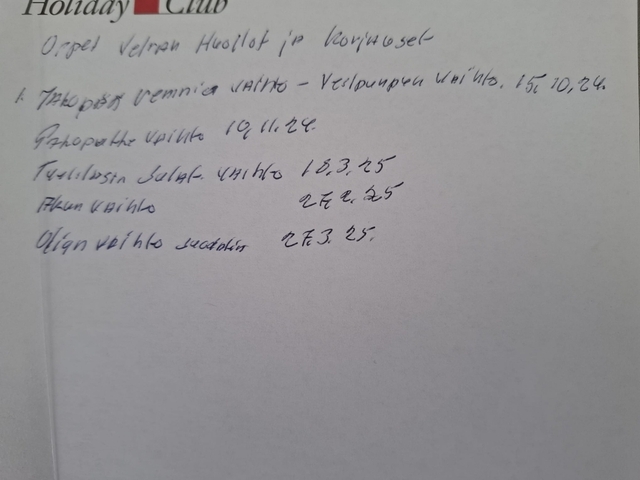 Holiday Club
Opel Huollot ja Korjaukset
1. Jakopään vaihto - Vesipumpun vaihto. 15.10.24.
Pakoputki vaihto 19.11.24.
Tuulilasin vaihto 18.3.25
Akun vaihto 27.2.25
Öljyn vaihto suodatin 27.3.25.